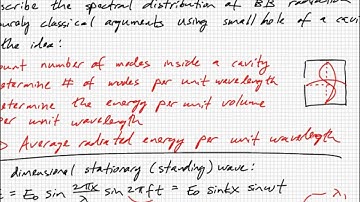 scribe the spectral distribution of BB radiation
purely classical arguments using small hole of a cavi
the idea:
ount number of modes inside a cavity
etermine # of modes per unit wavelength
etermine the energy per unit volume
per unit wavelength
Average radiated energy per unit wavelength
dimensional stationary (standing) wave:
= E₀ sin 2πx/λ sin 2πft = E₀ sin kx sin ωt